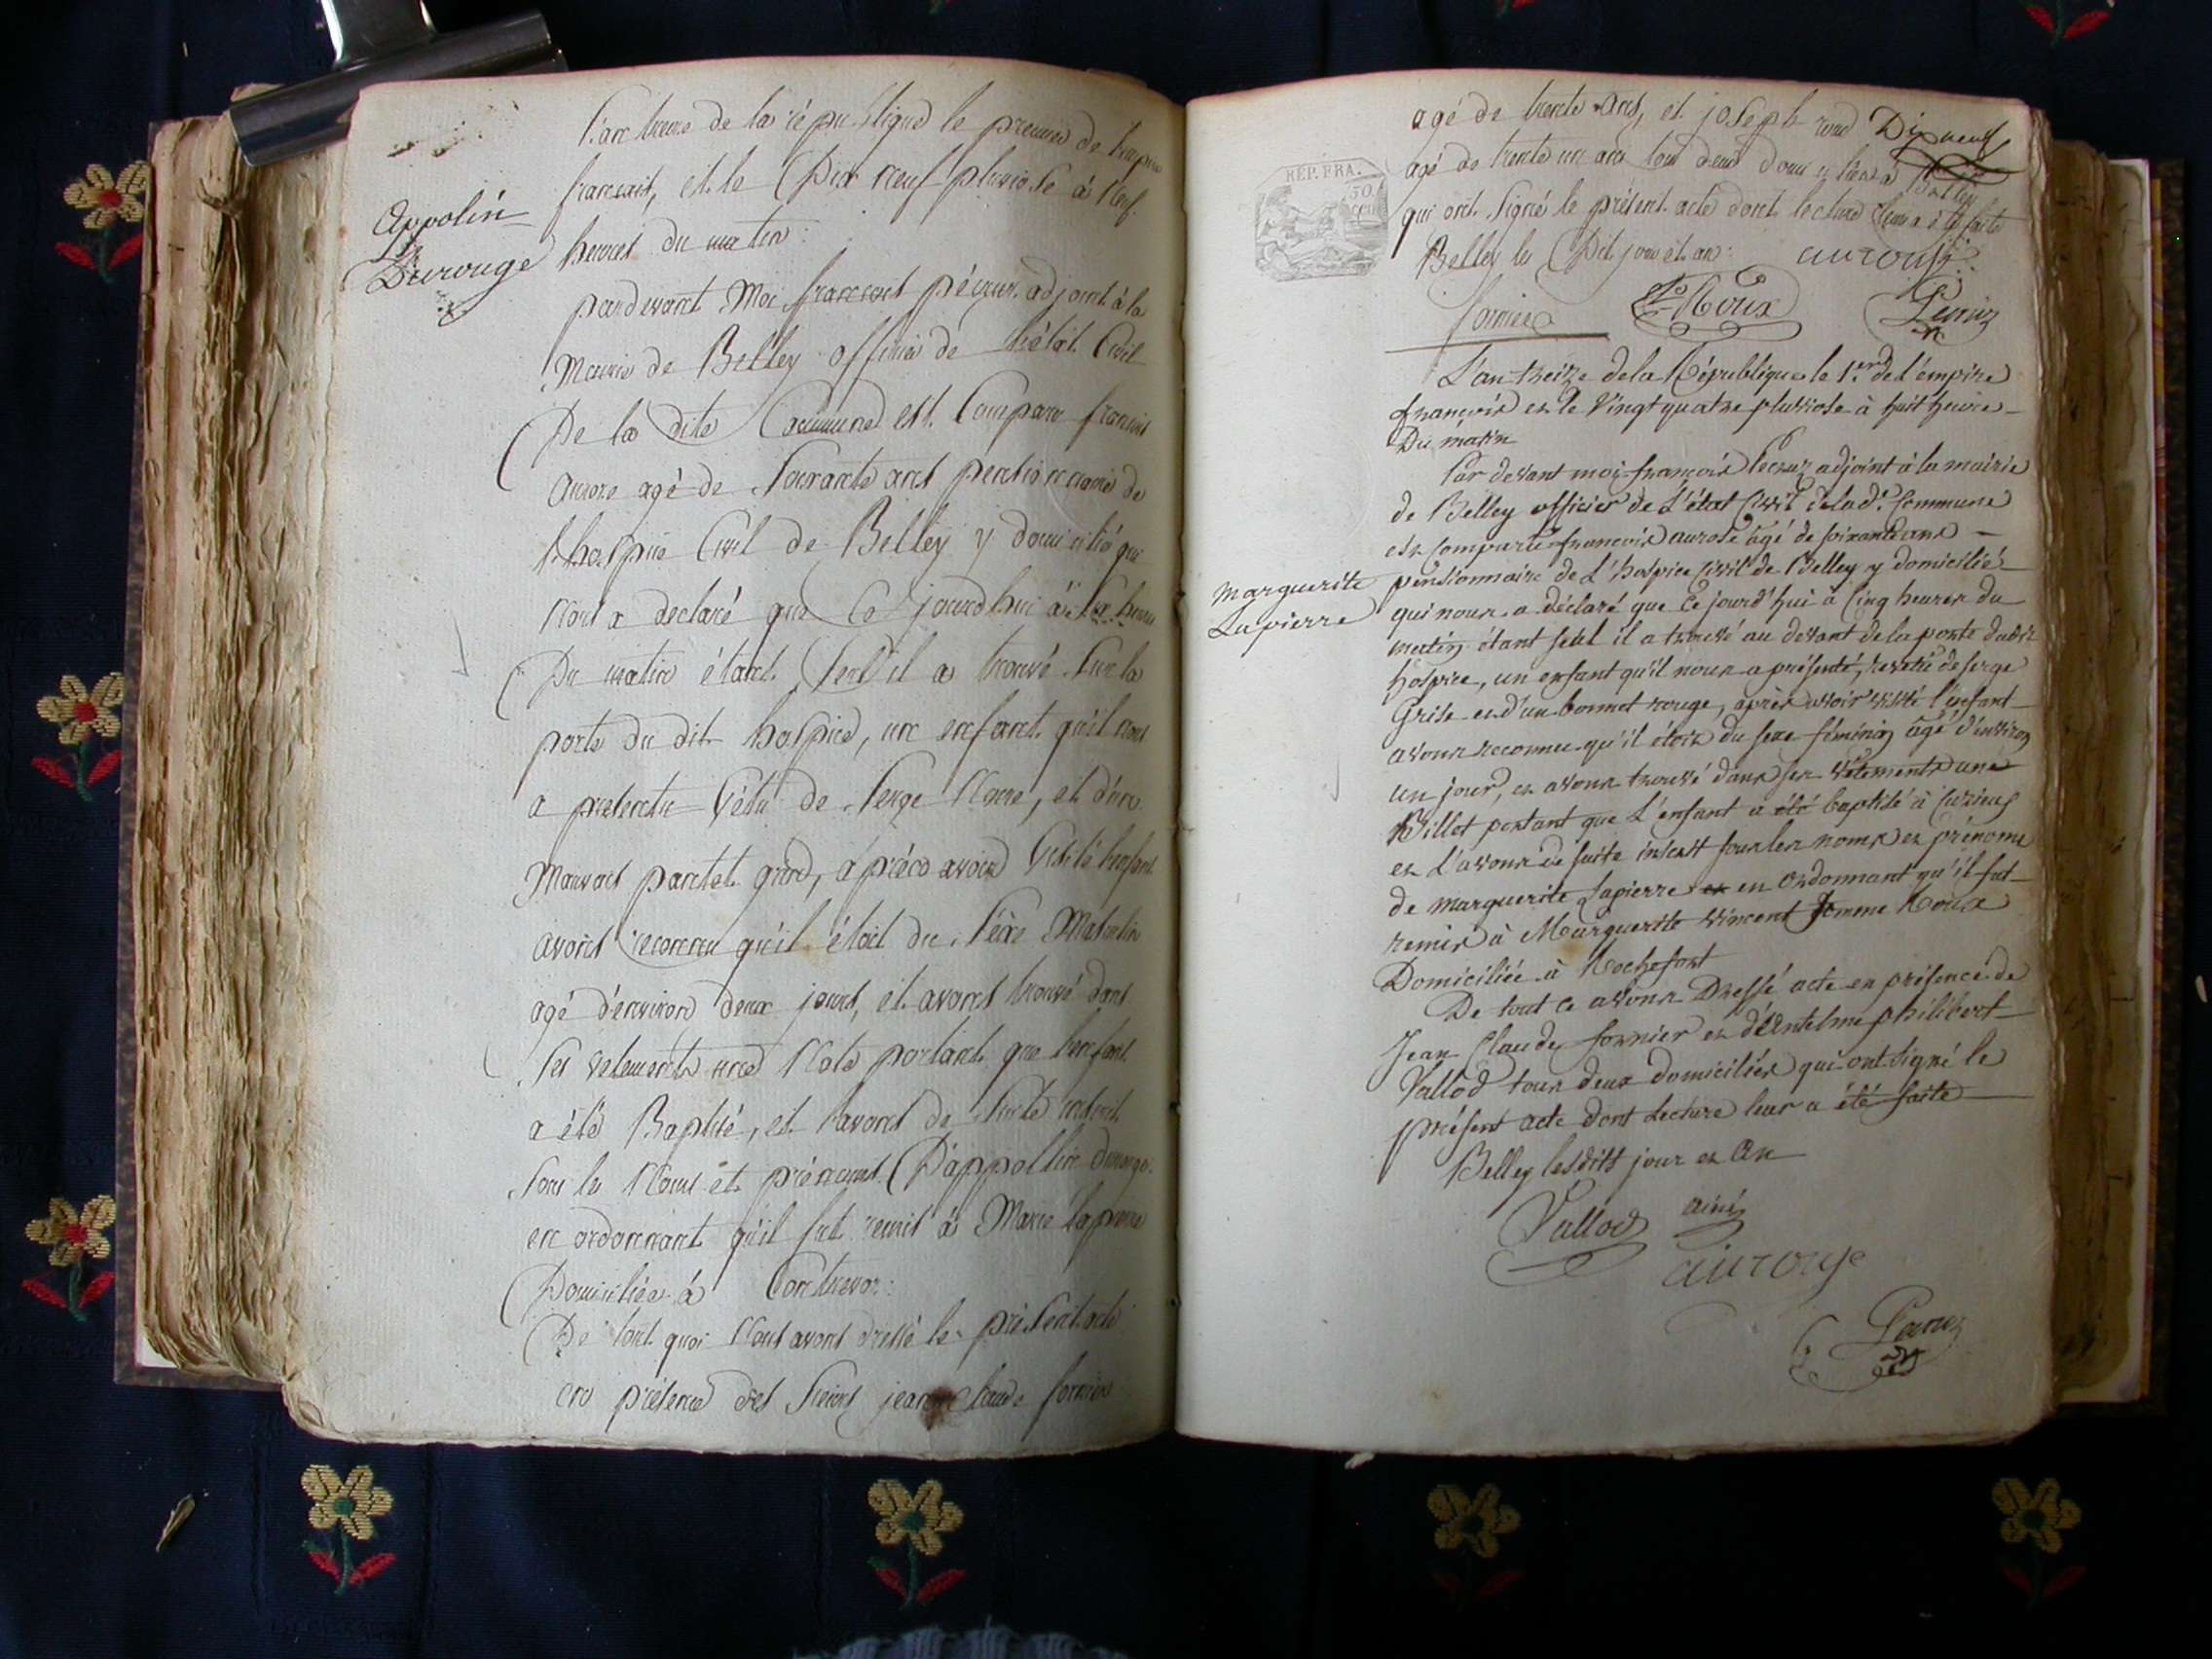 Appolin
Durouge
L'an treize de la république le premier de l'empire
français, et le Dix neuf pluviose à Neuf
heures du matin:
pardevant Moi francois pécuz adjoint à la
Mairie de Belley officier de l'état Civil
De la dite Commune est Comparu francois
aurore agé de Soixante ans pensionnaire de
l'hospice Civil de Belley y domicilié qui
Nous a declaré que Ce jourdhui à heures
Du matin étant Seul il a trouvé Sur la
porte du dit hospice, un enfant qu'il nous
a présenté Vêtu de Serge Noire, et d'un
Mauvais, après avoir Visité l'enfant
avons reconnu qu'il étoit du Sexe Masculin
agé d'environ deux jours, et avons trouvé dans
Ses vetements une Note portant que l'enfant
a été Baptisé, et l'avons de Suite inscrit
Sous les Noms et prénoms D'appollin durouge
en ordonnant qu'il fut remis à Marie
Domiciliée à Contrevoz:
De tout quoi Nous avons dressé le présent acte
en présence des Sieurs jean Claude fornier
agé de trente ans, et joseph roux Dix neuf
agé de trente un ans tous deux domiciliés à Belley
qui ont Signé le présent acte dont lecture leur a été faite
Belley les Dit jour et an:
RÉP. FRA.
50
fornier Roux
L'an treize de la République le 1.er de l'empire
françois et le Vingt quatre pluviose à huit heures
Du matin
Par devant moi françois Pecuz adjoint à la mairie
de Belley officier de L'état Civil de la d.e Commune
est Comparu françois aurose âgé de soixante ans
marguerite
Lapierre
pensionnaire de L'hospice Civil de Belley y domicilié
qui nous a déclaré que Ce jourd'hui à Cinq heures du
matin étant seul il a trouvé au devant de la porte dudit
hospice, un enfant qu'il nous a présenté, revetu de serge
Grise et d'un bonnet rouge, après avoir visité l'enfant
avons reconnu qu'il étoit du sexe féminin âgé d'environ
un jour, et avons trouvé dans ses vêtements une
Billet portant que L'enfant a été baptisé à Cuzieux
et L'avons de suite inscrit sous les noms et prénoms
de marguerite Lapierre et en ordonnant qu'il fut
remis à Marguerite Vincent femme Roux
Domiciliée à Rochefort
De tout ce avons Dressé acte en présence de
Jean Claude fornier et d'Antelme philibert
Vallod tous deux domiciliés qui ont signé le
présent acte dont Lecture leur a été faite
Belley lesdits jour et an
Vallod ainé
aurouze